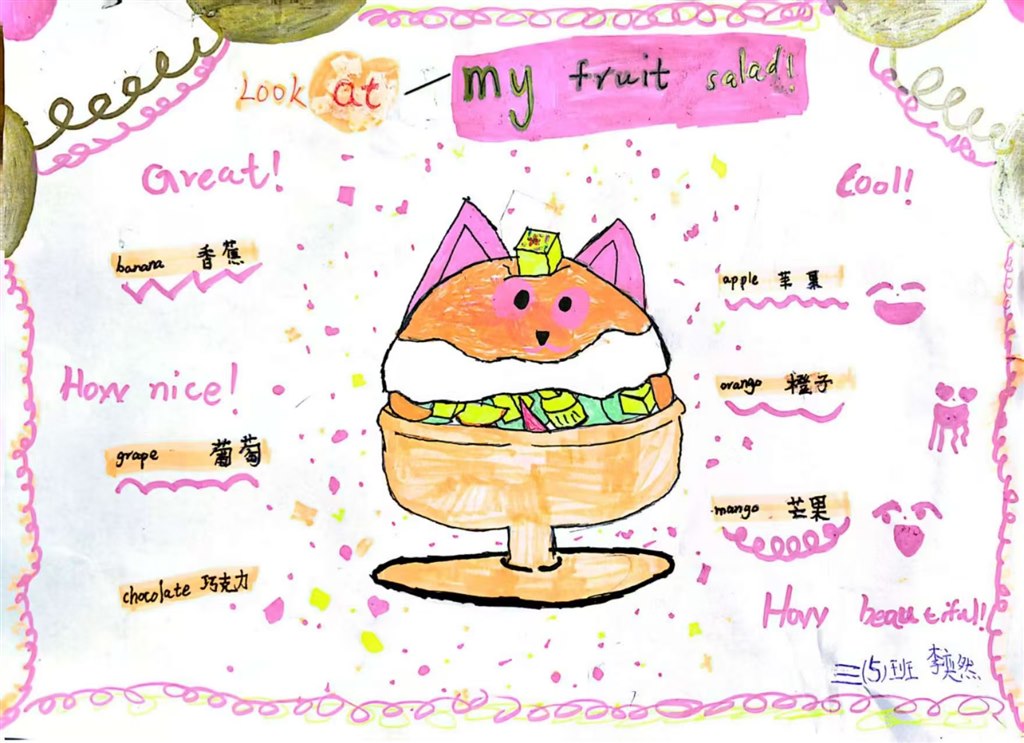 Look at my fruit salad!
Great!
Cool!
banana 香蕉
apple 苹果
How nice!
orango 橙子
grape 葡萄
mango 芒果
chocolate 巧克力
How beautiful!
三(5)班 李奕然